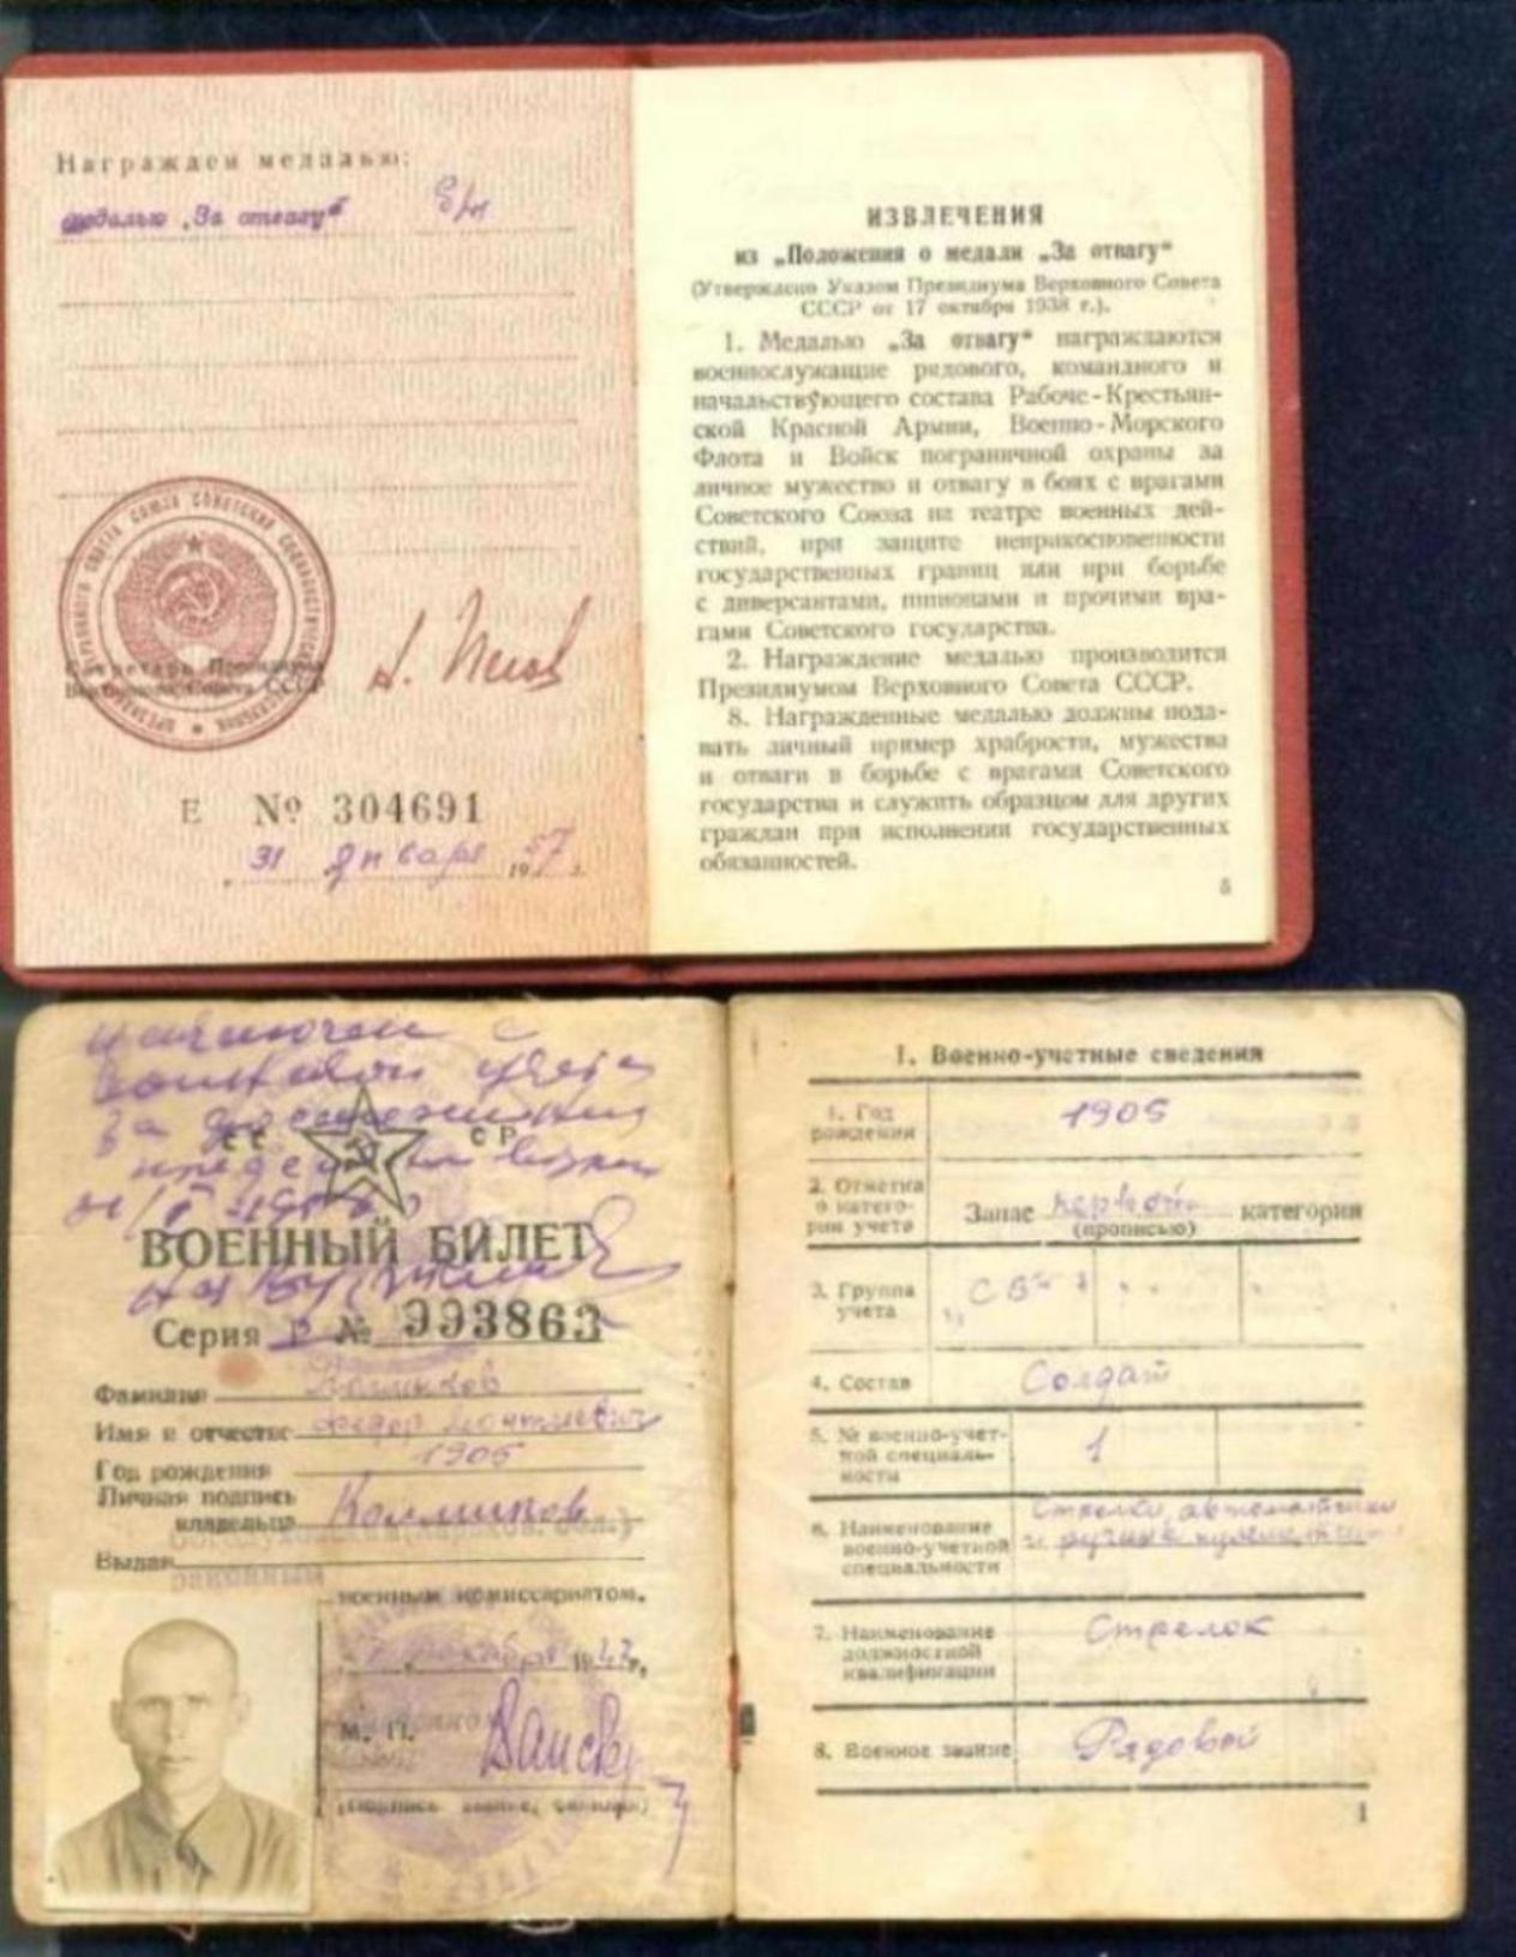 Награжден медалью:
медалью „За отвагу“ б/н
Секретарь Президиума
Верховного Совета СССР
Е № 304691
31 января 1957 г.
ИЗВЛЕЧЕНИЯ
из „Положения о медали „За отвагу“
(Утверждено Указом Президиума Верховного Совета
СССР от 17 октября 1938 г.).
1. Медалью „За отвагу“ награждаются
военнослужащие рядового, командного и
начальствующего состава Рабоче-Крестьян-
ской Красной Армии, Военно-Морского
Флота и Войск пограничной охраны за
личное мужество и отвагу в боях с врагами
Советского Союза на театре военных дей-
ствий, при защите неприкосновенности
государственных границ или при борьбе
с диверсантами, шпионами и прочими вра-
гами Советского государства.
2. Награждение медалью производится
Президиумом Верховного Совета СССР.
8. Награжденные медалью должны пода-
вать личный пример храбрости, мужества
и отваги в борьбе с врагами Советского
государства и служить образцом для других
граждан при исполнении государственных
обязанностей.
5
с
воинского учета
за
СССР
ВОЕННЫЙ БИЛЕТ
Серия № 993863
Фамилия
Имя и отчество Федор
Год рождения 1905
Личная подпись
владельца
Выдан
районным
военным комиссариатом.
декабря
М. П.
(подпись, звание, фамилия)
I. Военно-учетные сведения
1. Год
рождения 1905
2. Отметка
о катего-
рии учета Запас первой категории
(прописью)
3. Группа
учета
4. Состав Солдат
5. № военно-учет-
ной специаль-
ности 1
6. Наименование
военно-учетной
специальности
7. Наименование
должностной
квалификации Стрелок
8. Военное звание Рядовой
1